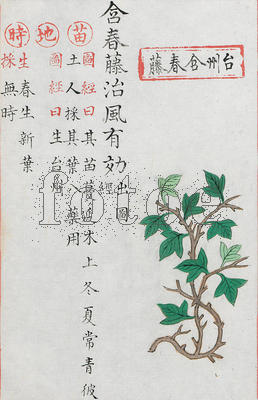 台州含春藤
含春藤治風有効出圖經
苗 圖經曰其苗蔓延木上冬夏常青彼
土人採其葉入藥用
地 圖經曰生台州
時 生春生新葉
採無時